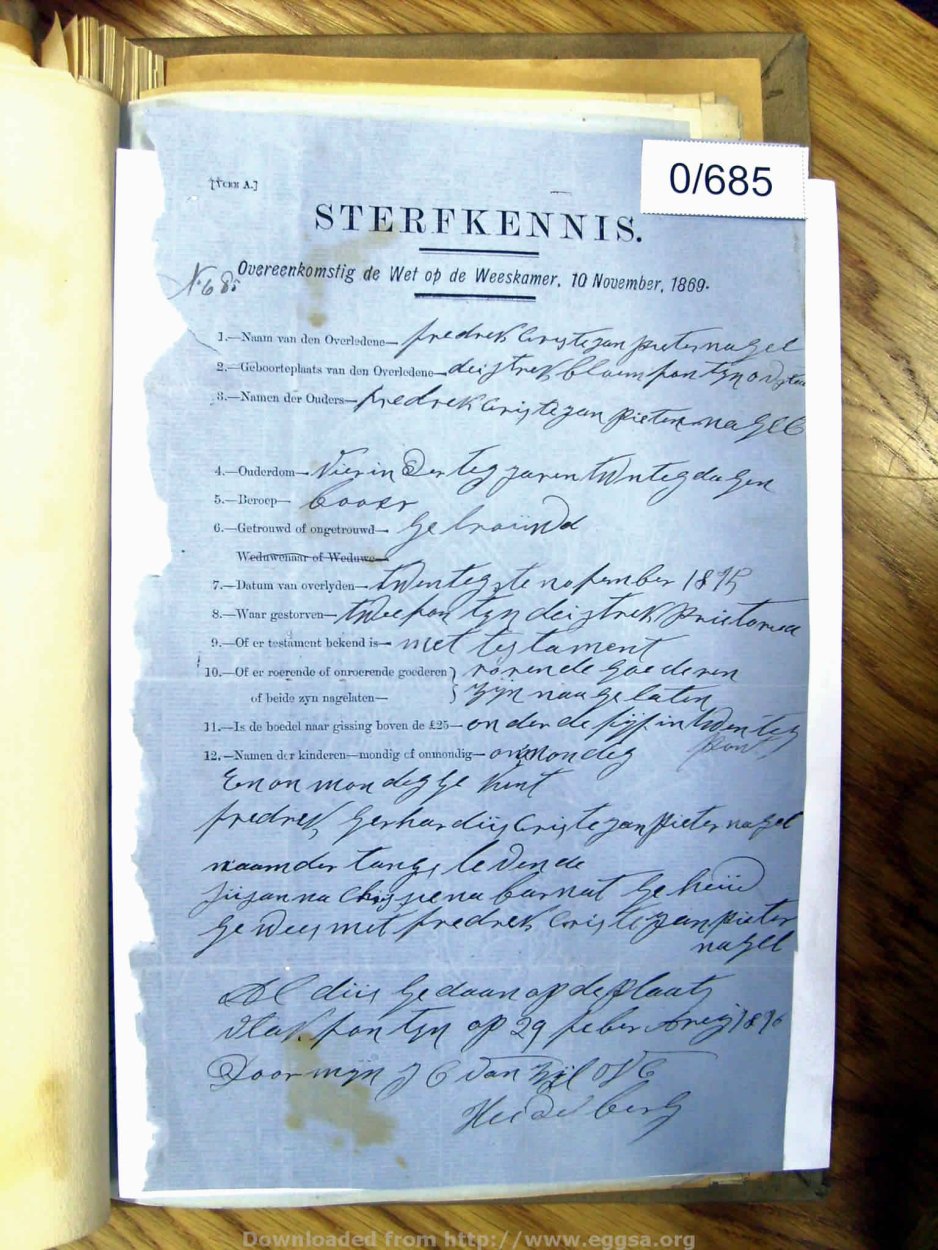 0/685
[VORM A.]
STERFKENNIS.
Overeenkomstig de Wet op de Weeskamer, 10 November, 1869.
N. 685
1.—Naam van den Overledene— fredrek Cristejan pieter nagel
2.—Geboorteplaats van den Overledene— deistrek bloumfontyn
3.—Namen der Ouders— fredrek Cristejan pieter nagel
4.—Ouderdom— Vier in Derteg jaren twnteg dagen
5.—Beroep— booer
6.—Getrouwd of ongetrouwd— getrouwd
Weduwenaar of Weduwe—
7.—Datum van overlyden— twentegste nofember 1875
8.—Waar gestorven— tweefontyn deistrek
9.—Of er testament bekend is— met testament
10.—Of er roerende of onroerende goederen } rorende goederen
of beide zyn nagelaten— } zyn naagelaten
11.—Is de boedel naar gissing boven de £25— onder de fyf in twenteg
pont
12.—Namen der kinderen—mondig of onmondig— onmondeg
En on mondegge kint
fredrek Gerhardus Cristejan Pieter nagel
naam der langs levende
susanna barnat
gewees met fredrek Cristejan pieter
nagel
Al dus gedaan op de plaats
vlakfontyn op 29 1876
Door myn J C van Zyl
Heidelberg
Downloaded from http://www.eggsa.org